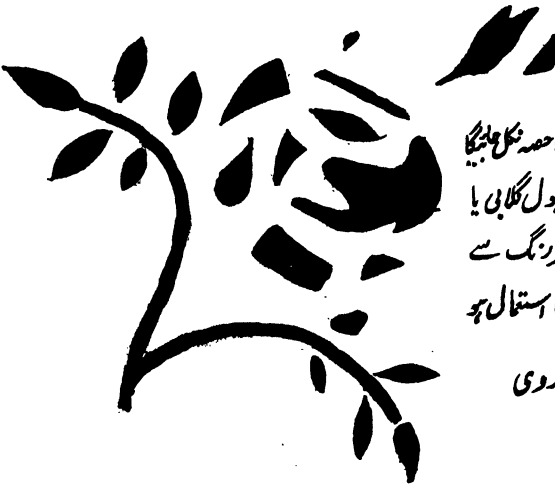 حصہ نکل جائیگا
ول گلابی یا
رنگ سے
استعمال ہو
روی